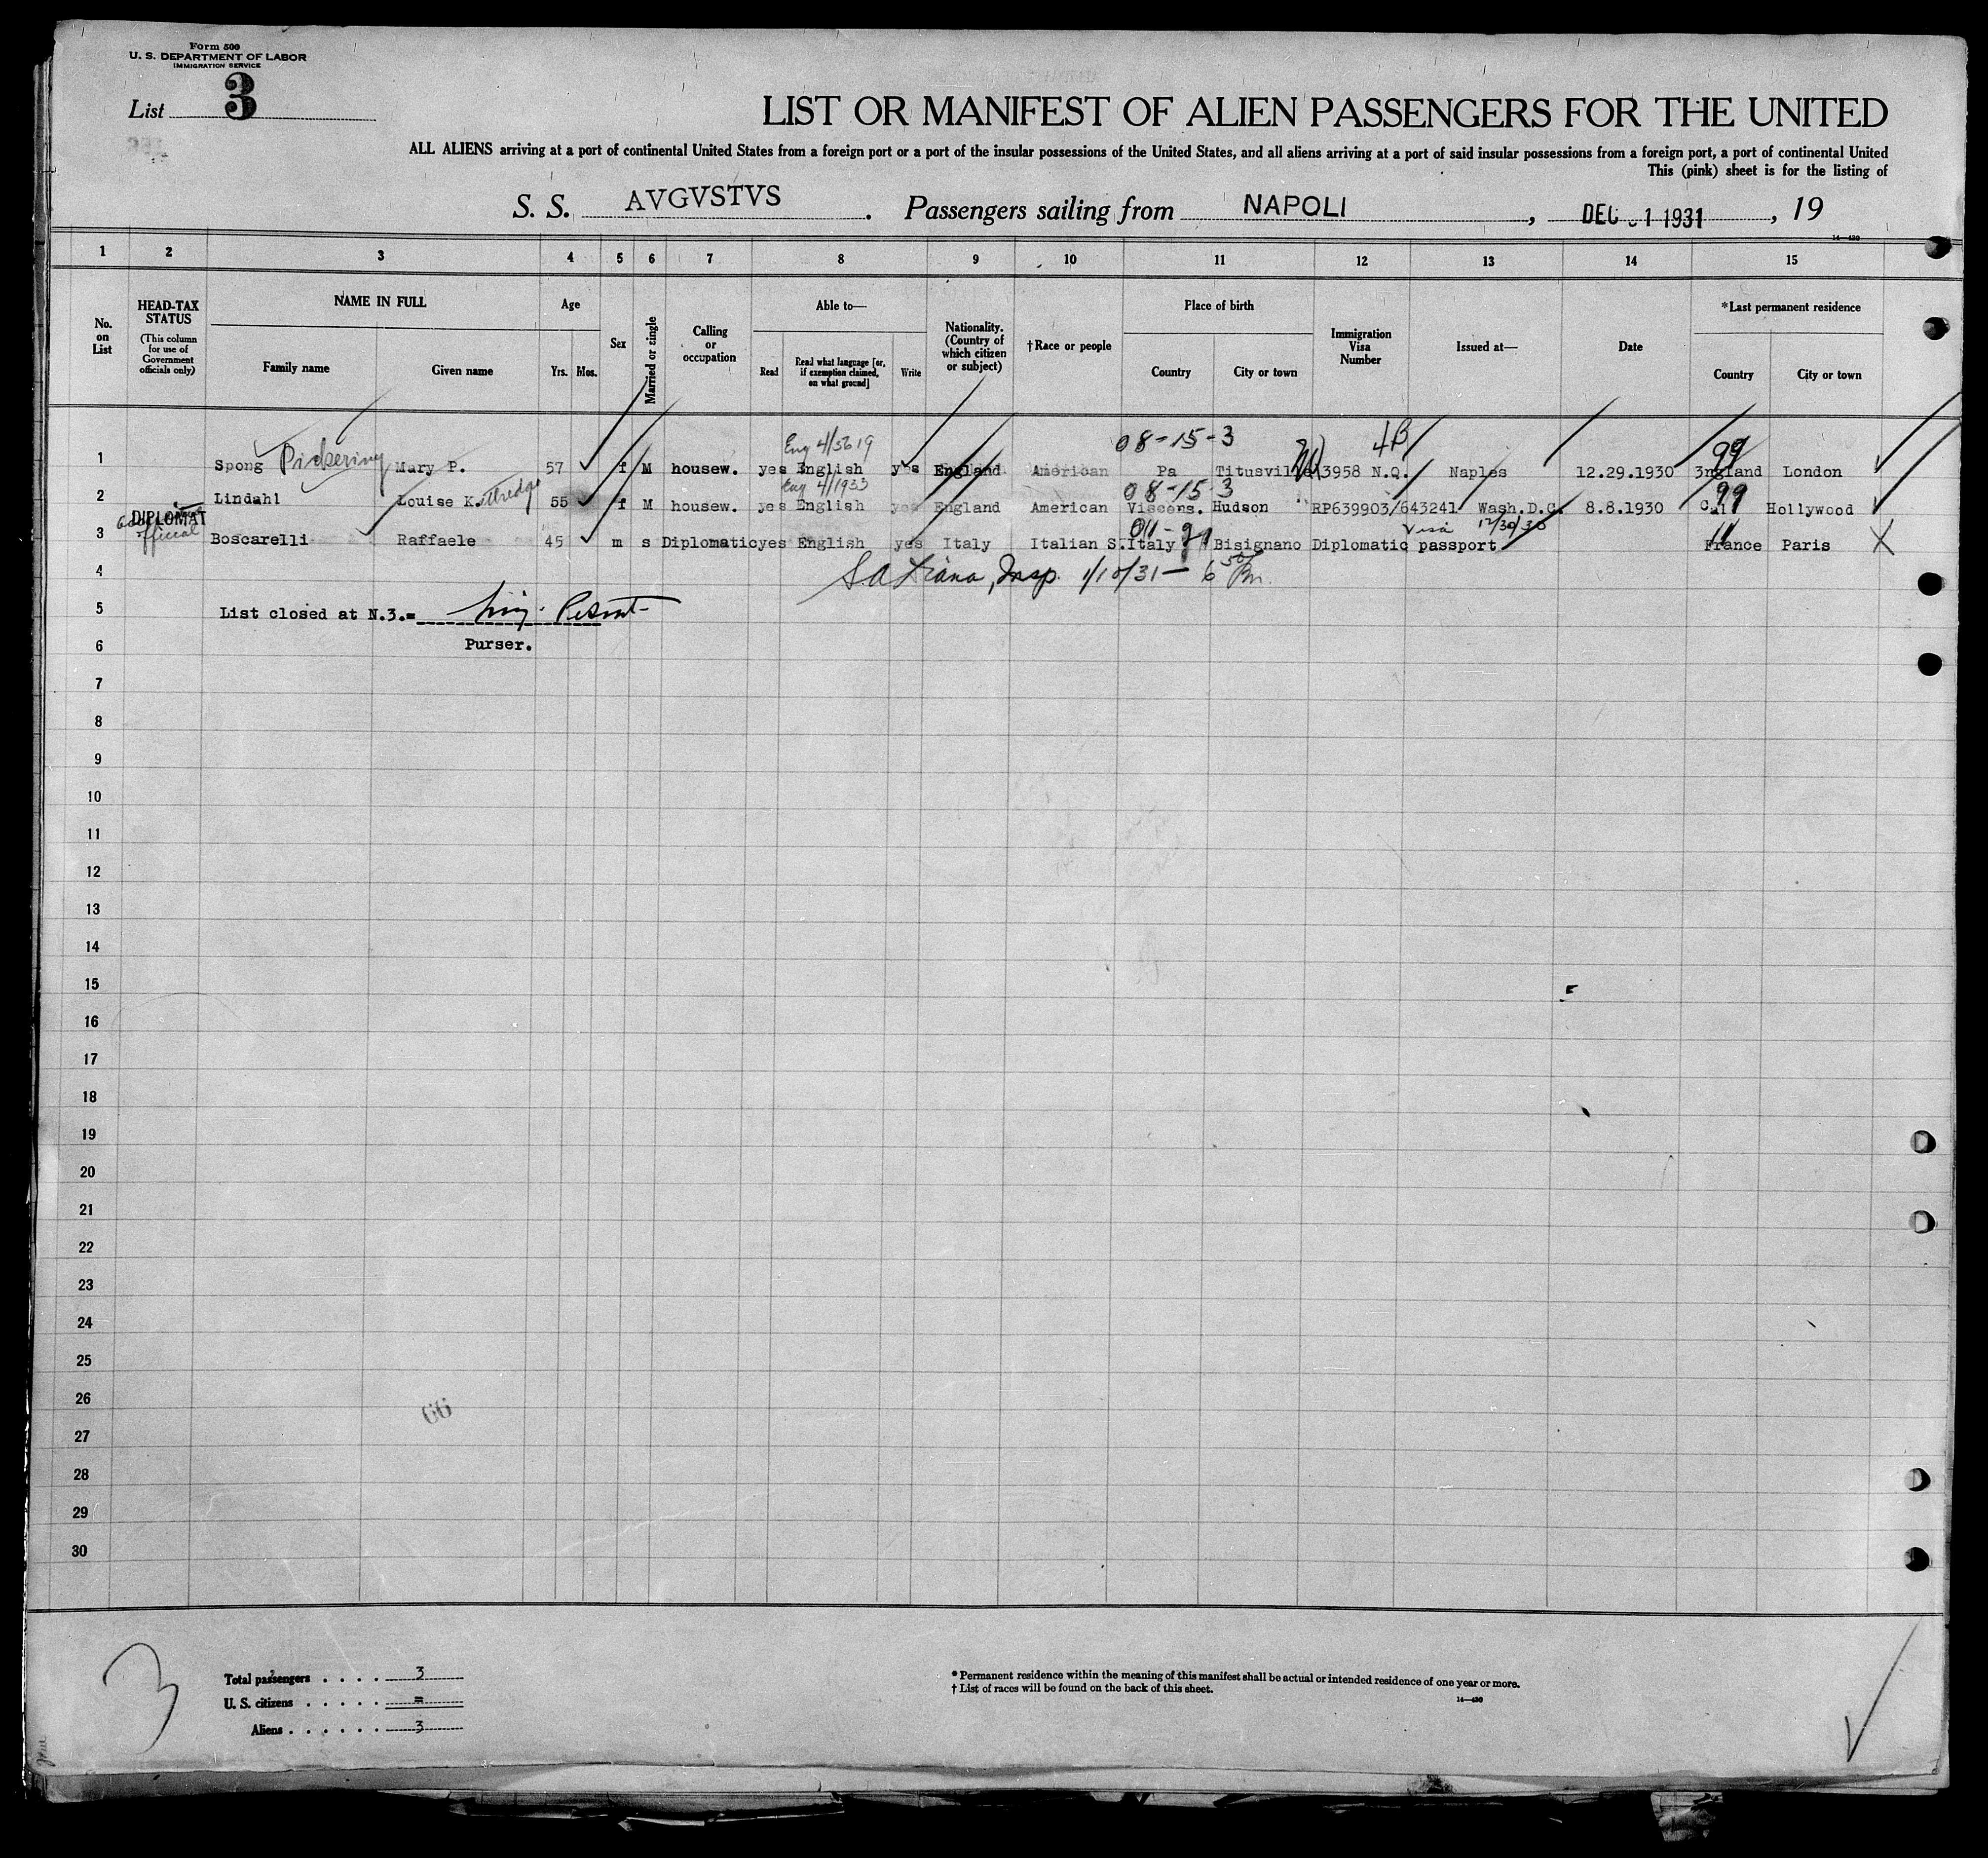 Form 500
U. S. DEPARTMENT OF LABOR
IMMIGRATION SERVICE
List 3
LIST OR MANIFEST OF ALIEN PASSENGERS FOR THE UNITED
ALL ALIENS arriving at a port of continental United States from a foreign port or a port of the insular possessions of the United States, and all aliens arriving at a port of said insular possessions from a foreign port, a port of continental United
This (pink) sheet is for the listing of
S. S. AVGVSTVS . Passengers sailing from NAPOLI , DEC 31 1931 , 19
14—430
1 2 3 4 5 6 7 8 9 10 11 12 13 14 15
No. on List
HEAD-TAX STATUS
(This column for use of Government officials only)
NAME IN FULL
Family name Given name
Age
Yrs. Mos.
Sex
Married or single
Calling or occupation
Able to—
Read Read what language [or, if exemption claimed, on what ground] Write
Nationality. (Country of which citizen or subject)
†Race or people
Place of birth
Country City or town
Immigration Visa Number
Issued at—
Date
*Last permanent residence
Country City or town
Eng 4/5619 08-15-3 4B 99
1 Spong Pickering Mary P. 57 f M housew. yes English yes England American Pa Titusville 3958 N.Q. Naples 12.29.1930 3ngland London
Eng 4/1933 08-15-3 99
2 Lindahl Louise K. 55 f M housew. yes English yes England American Viscons. Hudson RP639903/643241 Wash.D.C. 8.8.1930 Hollywood
DIPLOMAT
official
Visa 12/30/30
3 Boscarelli Raffaele 45 m s Diplomatic yes English yes Italy Italian S. Italy Bisignano Diplomatic passport France Paris X
4 Insp. 1/10/31—
5 List closed at N.3.=
6 Purser.
7
8
9
10
11
12
13
14
15
16
17
18
19
20
21
22
23
24
25
26
66
27
28
29
30
3
Total passengers . . . . 3
U. S. citizens . . . . . =
Aliens . . . . . . 3
* Permanent residence within the meaning of this manifest shall be actual or intended residence of one year or more.
† List of races will be found on the back of this sheet.
14—430